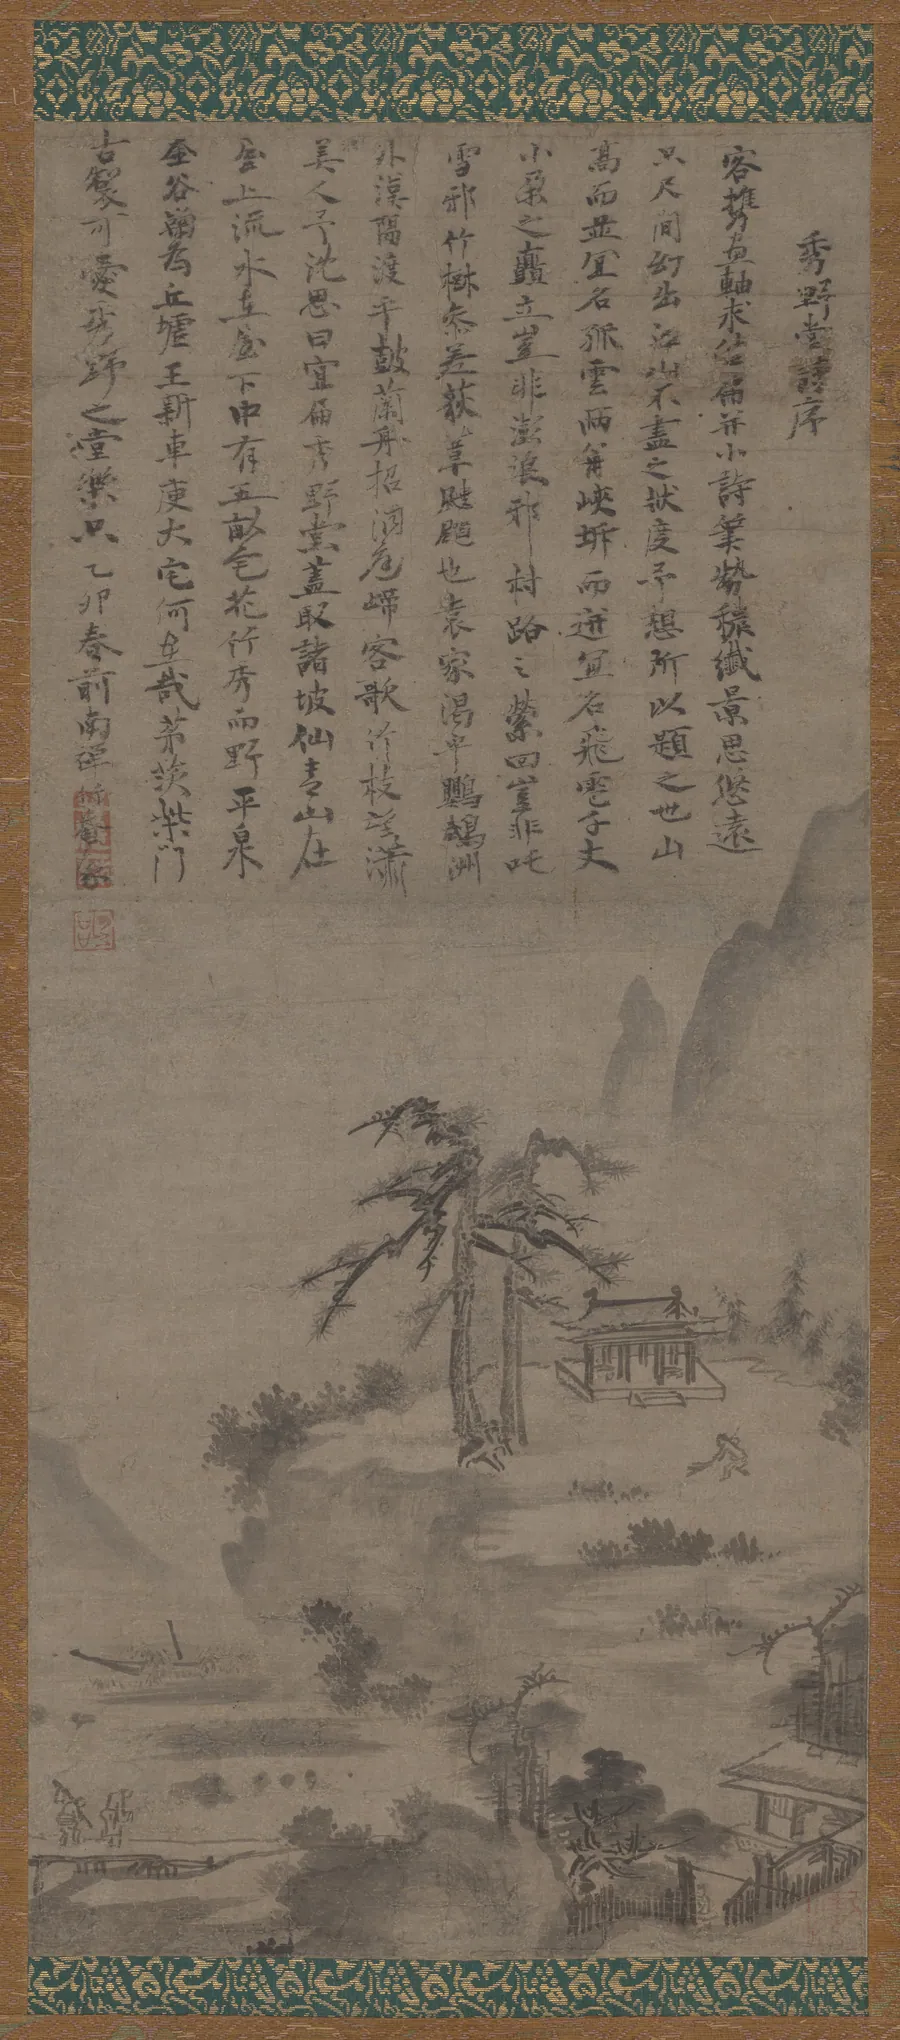 秀野堂詩序
客攜畫軸求佔扁并小詩筆勢穠纖景思悠遠
只尺間幻出江山不盡之狀度予想所以題之也山
高而並宜名孤雲兩角峽坼而迸宜名飛雹千丈
小朶之矗立豈非澎浪邪村路之縈回豈非吒
雪邪竹樹參差荻草颭颸也袁家渴中鸚鵡洲
外漢陽渡平鼓蘭舟招涓尾啼客歌竹枝望瀟
美人予沈思曰宜扁秀野堂蓋取諸坡仙青山在
屋上流水在屋下中有五畝宅花竹秀而野平泉
金谷翻為丘墟王新車庾大宅何在哉茅茨柴門
古篆可愛秀野之堂樂只乙卯春前南禪